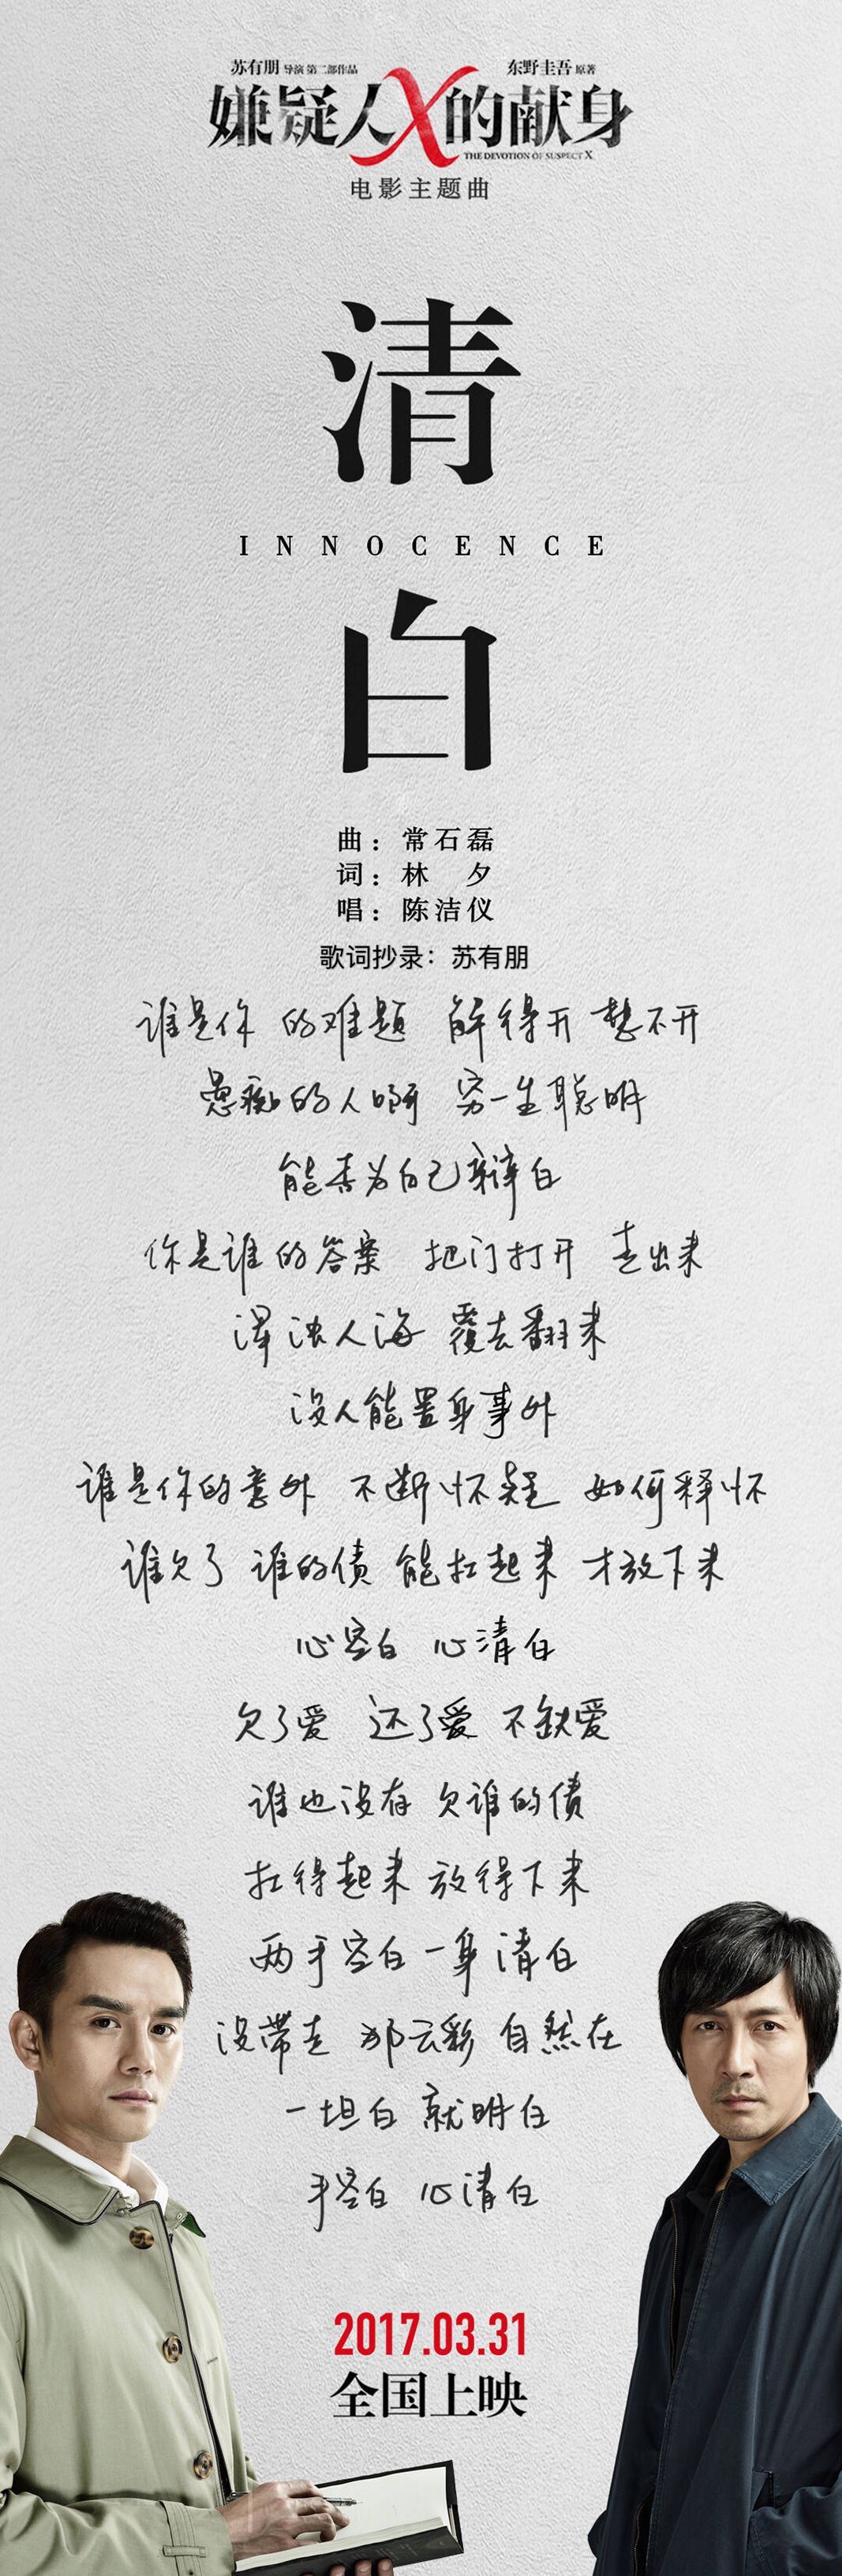 苏有朋 导演 第二部作品 东野圭吾 原著
嫌疑人X的献身
THE DEVOTION OF SUSPECT X
电影主题曲
清
INNOCENCE
白
曲：常石磊
词：林 夕
唱：陈洁仪
歌词抄录：苏有朋
谁是你 的难题 解得开 想不开
愚痴的人啊 穷一生聪明
能否为自己辩白
你是谁的答案 把门打开 走出来
浑浊人海 覆去翻来
没人能置身事外
谁是你的意外 不断怀疑 如何释怀
谁欠了 谁的债 能扛起来 才放下来
心空白 心清白
欠了爱 还了爱 不缺爱
谁也没有 欠谁的债
扛得起来 放得下来
两手空白 一身清白
没带走 那云彩 自然在
一坦白 就明白
手空白 心清白
2017.03.31
全国上映